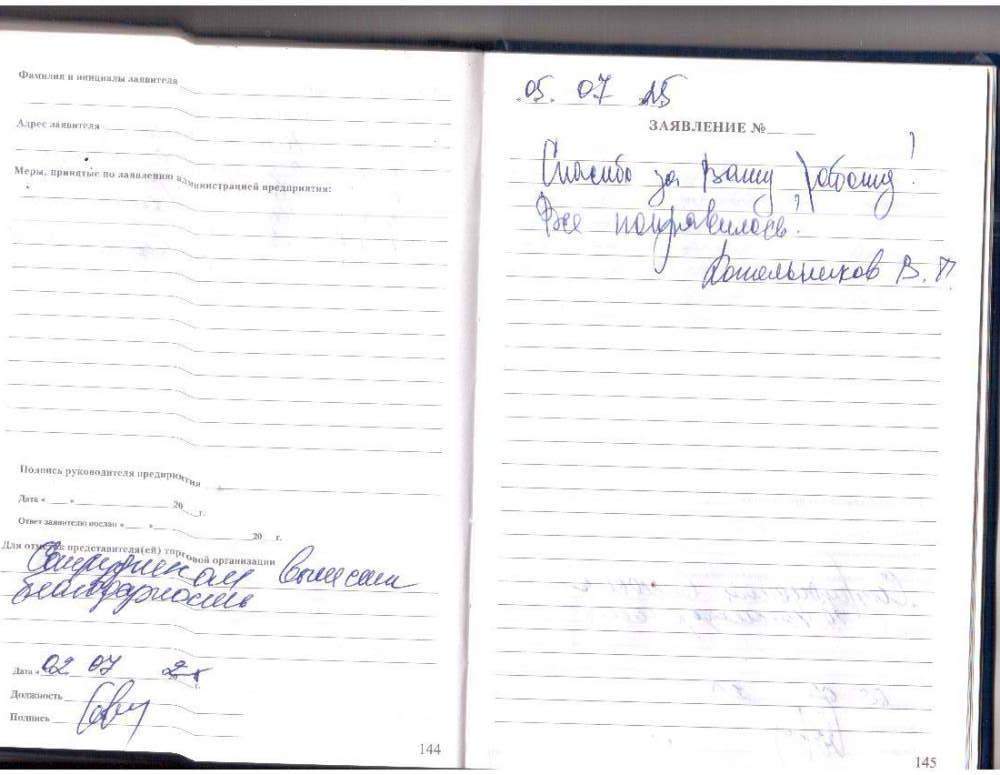 Фамилия и инициалы заявителя
Адрес заявителя
Меры, принятые по заявлению администрацией предприятия:
Подпись руководителя предприятия
Дата « » 20 г.
Ответ заявителю послан « » 20 г.
Для отметок представителя(ей) торговой организации
Сотрудникам вынесли
благодарность
Дата « 02 07 25 г.
Должность
Подпись
144
05. 07 25
ЗАЯВЛЕНИЕ №
Спасибо за Вашу работу!
Все понравилось.
Котельников В. П.
145